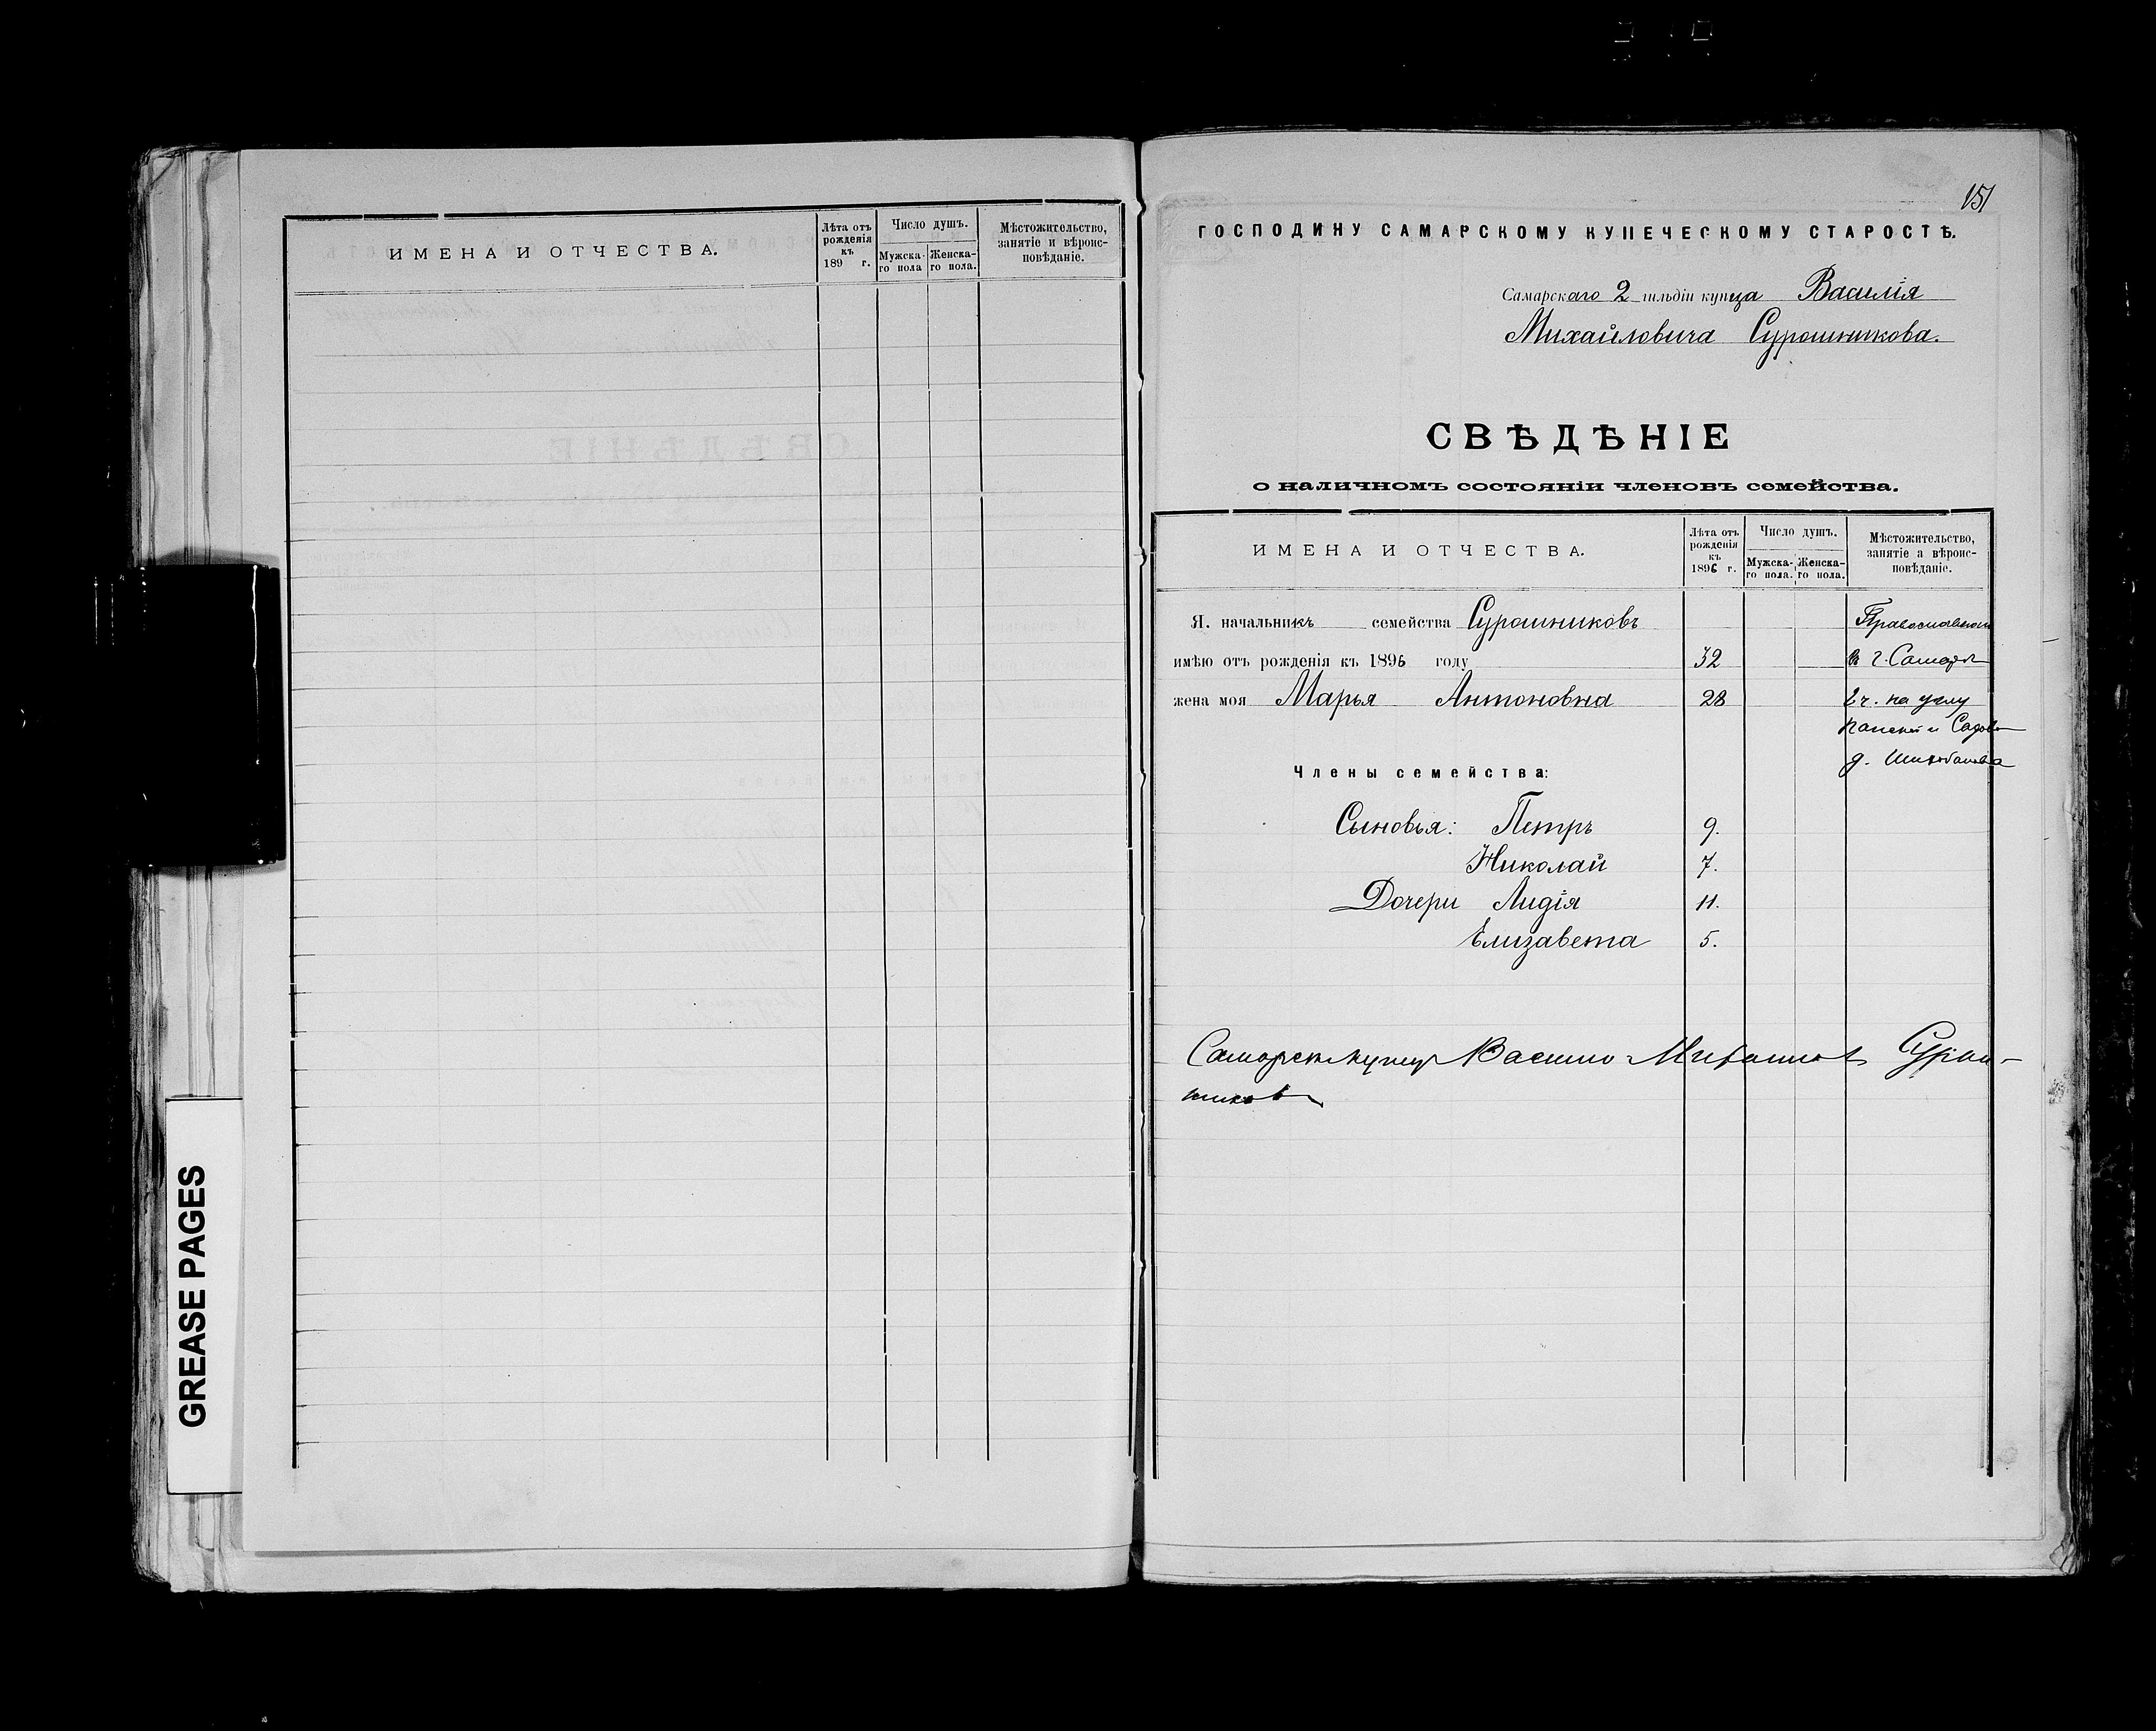 ИМЕНА И ОТЧЕСТВА.
Лѣта отъ рожденія къ 189 г.
Число душъ.
Мужска-го пола
Женска-го пола.
Мѣстожительство, занятіе и вѣроис-повѣданіе.
GREASE PAGES
151
ГОСПОДИНУ САМАРСКОМУ КУПЕЧЕСКОМУ СТАРОСТѢ.
Самарскаго 2 гильдіи купца Василія
Михайловича Сурошникова.
СВѢДѢНІЕ
о наличномъ состояніи членовъ семейства.
ИМЕНА И ОТЧЕСТВА.
Лѣта отъ рожденія къ 1896 г.
Число душъ.
Мужска-го пола.
Женска-го пола.
Мѣстожительство, занятіе а вѣроис-повѣданіе.
Я. начальникъ семейства Сурошниковъ
имѣю отъ рожденія къ 1896 году 32 въ г. Самарѣ
жена моя Марья Антоновна 28 2 ч. на углу
Члены семейства:
Сыновья: Петръ 9.
Николай 7.
Дочери Лидія 11.
Елизавета 5.
Самарск купец Васили Михаилов Сурош-
ников